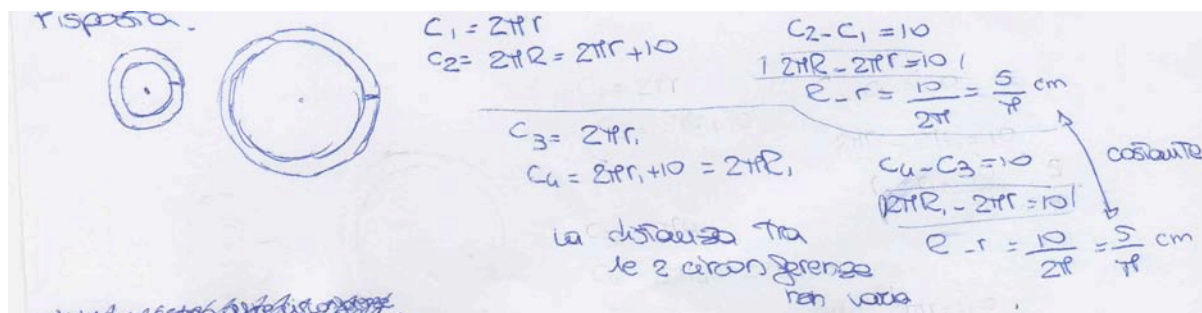 risposta.
C₁ = 2πr
C₂ = 2πR = 2πr + 10
C₂ - C₁ = 10
2πR - 2πr = 10
R - r = 10/2π = 5/π cm
C₃ = 2πr₁
C₄ = 2πr₁ + 10 = 2πR₁
C₄ - C₃ = 10
2πR₁ - 2πr = 10
R - r = 10/2π = 5/π cm
costante
La distanza tra
le 2 circonferenze
non varia